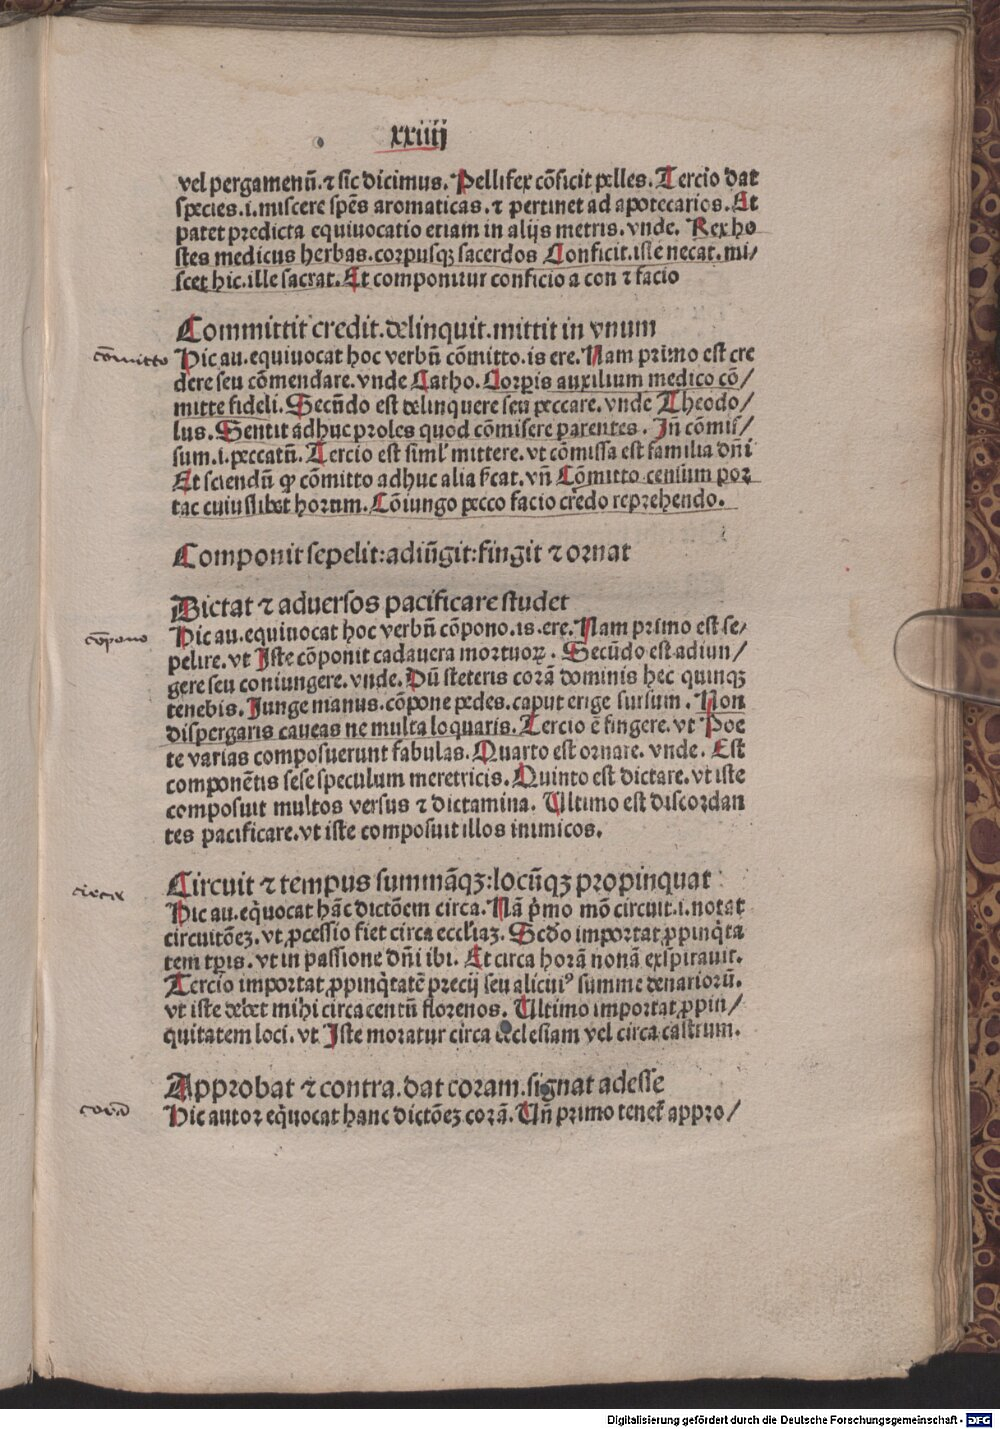 xxiiij
vel pergamenū. ⁊ sic dicimus. Pellifex cōficit pelles. Tercio dat
species .i. miscere spēs aromaticas. ⁊ pertinet ad apotecarios. Et
patet predicta equiuocatio etiam in alijs metris. vnde. Rex ho
stes medicus herbas. corpusqꝫ sacerdos Conficit. iste necat. mi/
scet hic. ille sacrat. Et componitur conficio a con ⁊ facio
Committit credit. delinquit. mittit in vnum
cōmitto
Hic au. equiuocat hoc verbū cōmitto. is ere. Nam primo est cre
dere seu cōmendare. vnde Catho. Corporis auxilium medico cō/
mitte fideli. Secūdo est delinquere seu peccare. vnde Theodo/
lus. Sentit adhuc proles quod cōmisere parentes. In cōmis/
sum .i. peccatū. Tercio est siml' mittere. vt cōmissa est familia dn̄i
Et sciendū ꝙ cōmitto adhuc alia sīcat. vn̄ Cōmitto censum por
tac cuiuslibet horum. Cōiungo pecco facio credo reprehendo.
Componit sepelit: adiūgit: fingit ⁊ ornat
Dictat ⁊ aduersos pacificare studet
cōpono
Hic au. equiuocat hoc verbū cōpono. is. ere. Nam primo est se-
pelire. vt Iste cōponit cadauera mortuoꝝ. Secūdo est adiun/
gere seu coniungere. vnde. Dū steteris corā dominis hec quinqꝫ
tenebis. Iunge manus. cōpone pedes. caput erige sursum. Non
dispergaris caueas ne multa loquaris. Tercio ē fingere. vt Poe
te varias composuerunt fabulas. Quarto est ornare. vnde. Est
componētis sese speculum meretricis. Quinto est dictare. vt iste
composuit multos versus ⁊ dictamina. Ultimo est discordan
tes pacificare. vt iste composuit illos inimicos.
Circuit ⁊ tempus summāqꝫ: locūqꝫ propinquat
circa
Hic au. eq̄uocat hāc dictōem circa. Nā p̄mo mō circuit .i. notat
circuitōeꝫ. vt ꝓcessio fiet circa eccl'iaꝫ. Scd̄o importat ꝓpinq̄ta
tem tꝑis. vt in passione dn̄i ibi. Et circa horā nonā exspirauit.
Tercio importat ꝓpinq̄tatē precij seu alicuiꝰ summe denariorū.
vt iste debet mihi circa centū florenos. Ultimo importat ꝓpin/
quitatem loci. vt Iste moratur circa ecclesiam vel circa castrum.
Approbat ⁊ contra. dat coram. signat adesse
corā
Hic autor eq̄uocat hanc dictōeꝫ corā. Vn̄ primo tenet̄ appro/
Digitalisierung gefördert durch die Deutsche Forschungsgemeinschaft - DFG